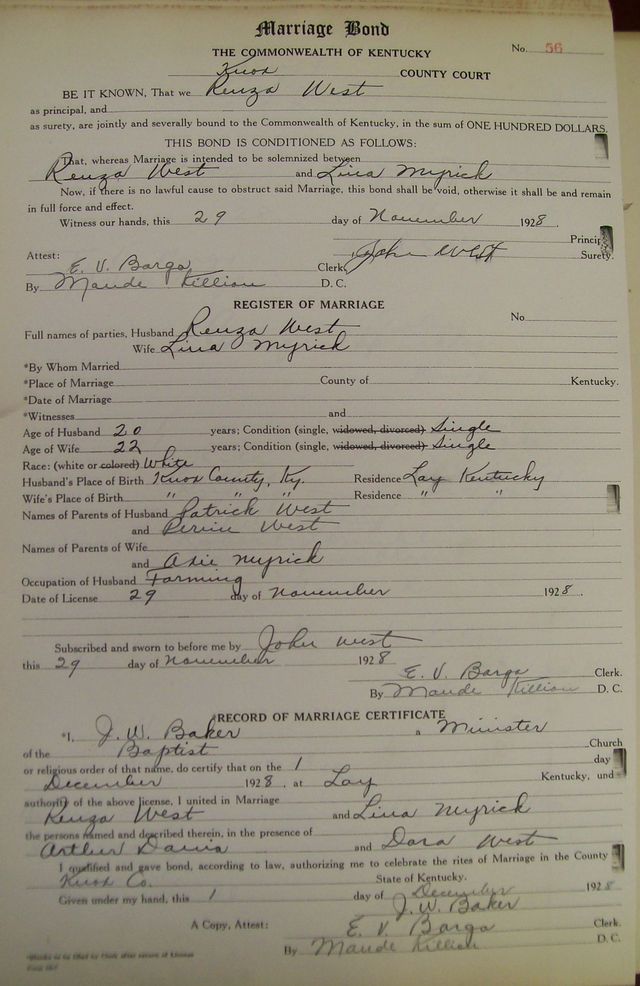 Marriage Bond
THE COMMONWEALTH OF KENTUCKY
No. 56
Knox COUNTY COURT
BE IT KNOWN, That we Renza West
as principal, and
as surety, are jointly and severally bound to the Commonwealth of Kentucky, in the sum of ONE HUNDRED DOLLARS.
THIS BOND IS CONDITIONED AS FOLLOWS:
That, whereas Marriage is intended to be solemnized between
Renza West and Lina Myrick
Now, if there is no lawful cause to obstruct said Marriage, this bond shall be void, otherwise it shall be and remain
in full force and effect.
Witness our hands, this 29 day of November 1928.
Princip
John West Surety.
Attest:
E. V. Bargo Clerk,
By Maude Killion D. C.
REGISTER OF MARRIAGE
No
Full names of parties, Husband Renza West
Wife Lina Myrick
*By Whom Married
*Place of Marriage County of Kentucky.
*Date of Marriage
*Witnesses and
Age of Husband 20 years; Condition (single, widowed, divorced) Single
Age of Wife 22 years; Condition (single, widowed, divorced) Single
Race: (white or colored) White
Husband's Place of Birth Knox County, Ky. Residence Lay Kentucky
Wife's Place of Birth " " " Residence " "
Names of Parents of Husband Patrick West
and Pervie West
Names of Parents of Wife
and Asie Myrick
Occupation of Husband Farming
Date of License 29 day of November 1928.
Subscribed and sworn to before me by John West
this 29 day of November 1928
E. V. Bargo Clerk.
By Maude Killion D. C.
RECORD OF MARRIAGE CERTIFICATE
*I, J. W. Baker a Minister
of the Baptist Church
or religious order of that name, do certify that on the 1 day
December 1928, at Lay Kentucky, und
authority of the above license, I united in Marriage
Renza West and Lina Myrick
the persons named and described therein, in the presence of
Arther Davis and Dora West
I qualified and gave bond, according to law, authorizing me to celebrate the rites of Marriage in the County
Knox Co. State of Kentucky.
Given under my hand, this 1 day of December 1928
J. W. Baker
A Copy, Attest: E. V. Bargo Clerk.
By Maude Killion D. C.